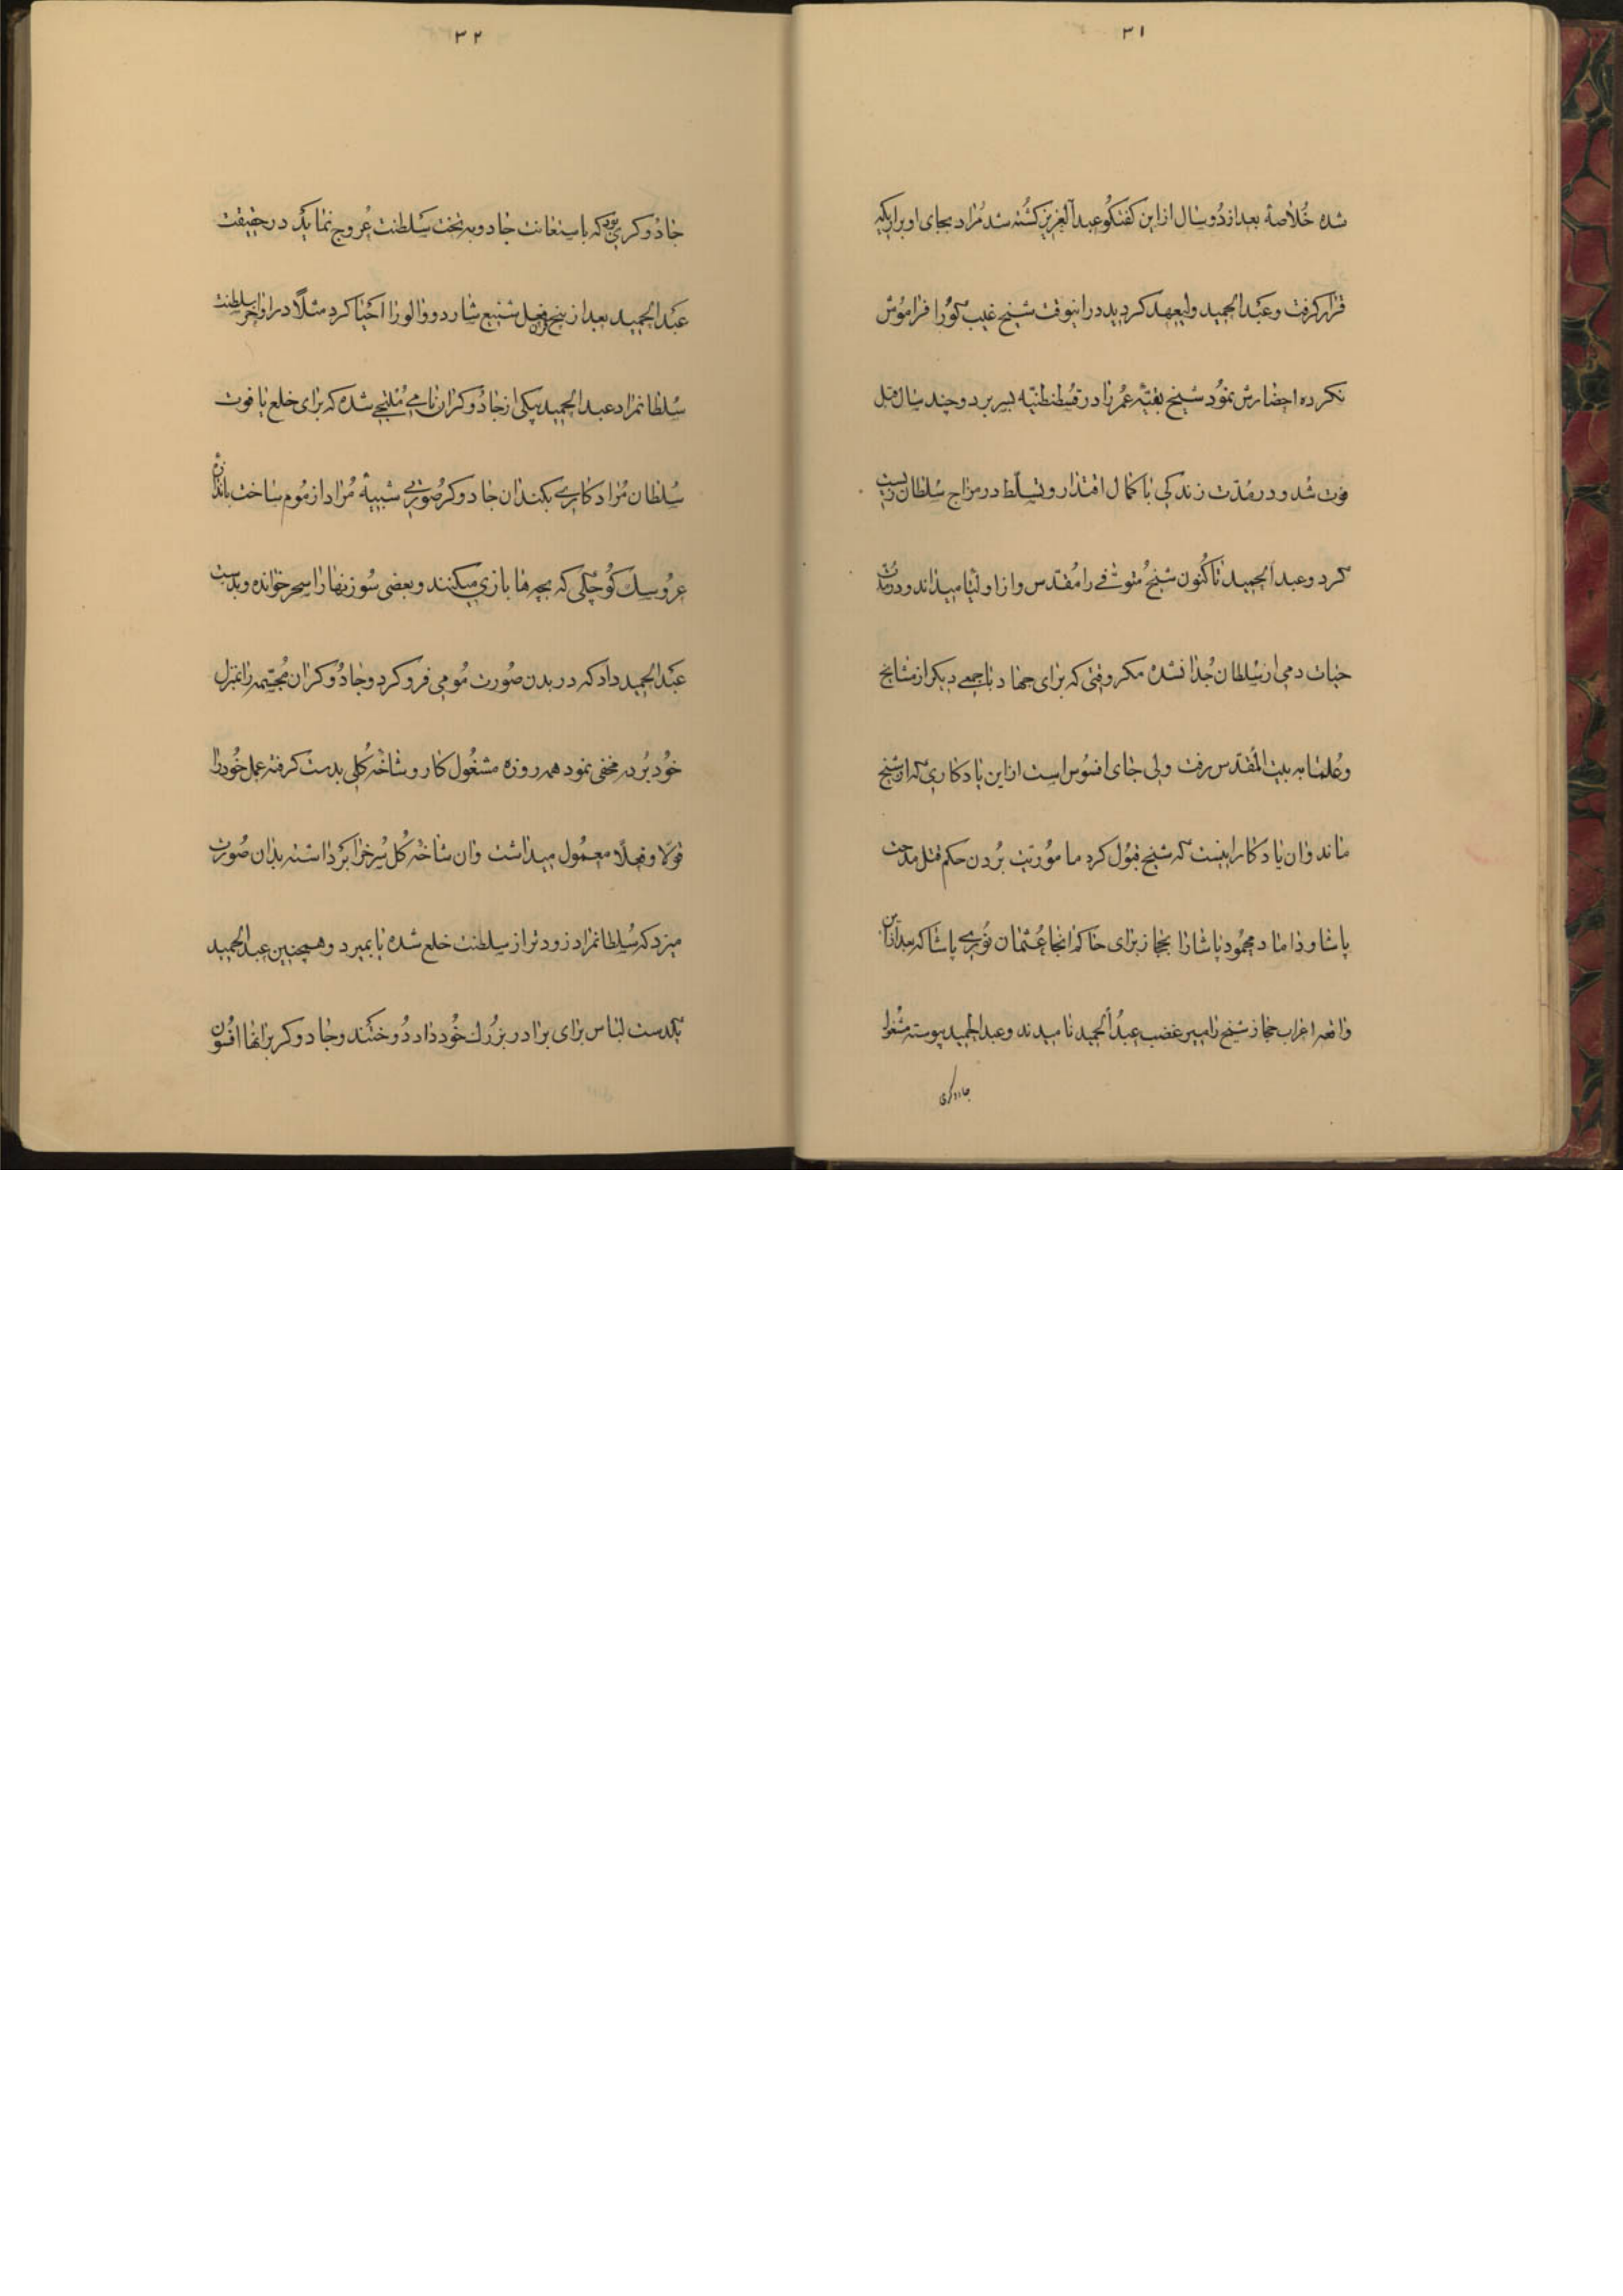 ۳۱
شده خلاصهٔ بعد از دو سال از این گفتگو عبدالعزیز کشته شد مراد بجای او برایکه
قرار گرفت و عبدالحمید ولیعهد گردید در اینوقت شیخ غیب گو را فراموش
نکرده احضارش نمود شیخ بقیّه عمر را در قسطنطنیّه بسر برد و چند سال قبل
فوت شد و در مدّت زندگی با کمال اقتدار و تسلّط در مزاج سلطان زیست
کرد و عبدالحمید تا کنون شیخ متوفی را مقدس و از اولیا میداند و در مدت
حیات دمی از سلطان جدا نشده مگر وقتی که برای جهاد با جمعی دیگر از مشایخ
و علما به بیت المقدس رفت ولی جای افسوس است از این یادکاری که از شیخ
ماند و ان یادکار اینست که شیخ قبول کرد ماموریّت بردن حکم قتل مدحت
پاشا و داماد محمود پاشا را بحجاز برای حاکم انجا عثمان نوری پاشا که بعد از این
واقعه اعراب حجاز شیخ را میر غضب عبدالحمید نامیدند و عبدالحمید پیوسته مشغول
جادوگری
۳۲
جادوگری بود که باستعانت جادو به تخت سلطنت عروج نماید در حقیقت
عبدالحمید بعد از پنج قرن فعل شنیع شارد ووالورا احیا کرد مثلاً در اواخر سلطنت
سلطانمراد عبدالحمید بیکی از جادوگران نامی ملتجی شده که برای خلع یا فوت
سلطان مراد کاری بکند ان جادوگر صورتی شبیه مراد از موم ساخت باندازه
عروسک کوچکی که بچه ها بازی میکنند و بعضی سوزنها را سحر خوانده و بدست
عبدالحمید داد که در بدن صورت مومی فرو کرد و جادوگر ان مجسمه را بمنزل
خود برده مخفی نمود همه روزه مشغول کار و شاخه گلی بدست گرفته عمل خود را
قولا و فعلا معمول میداشت وان شاخه گل سرخ را برداشته بدان صورت
میزد که سلطانمراد زودتر از سلطنت خلع شده یا بمیرد و همچنین عبدالحمید
یکدست لباس برای برادر بزرک خود داد دوختند و جادوگر برانها افسون